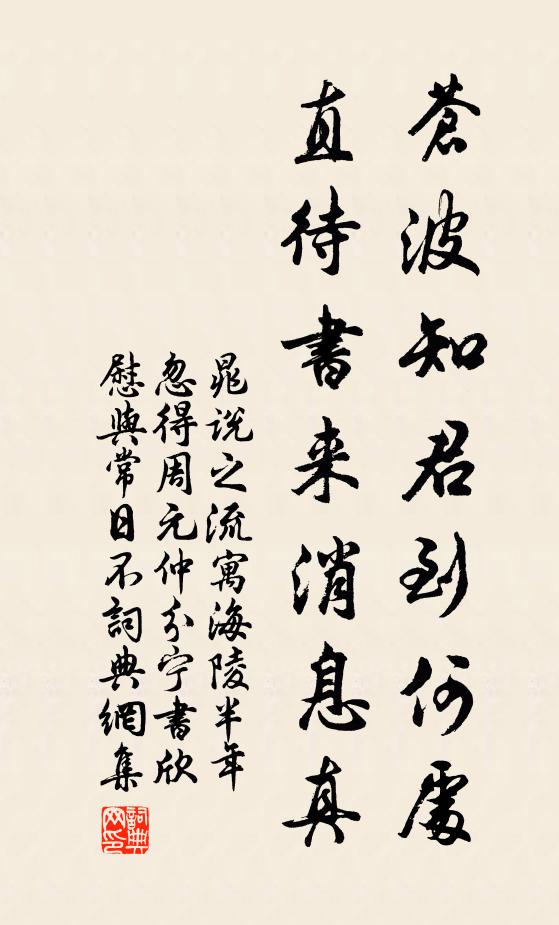 蒼波知君到何處
直待書来消息真
晁説之流寓海陵半年
忽得周元仲分宁書欣
慰與常日不詞典網集
詞典網印